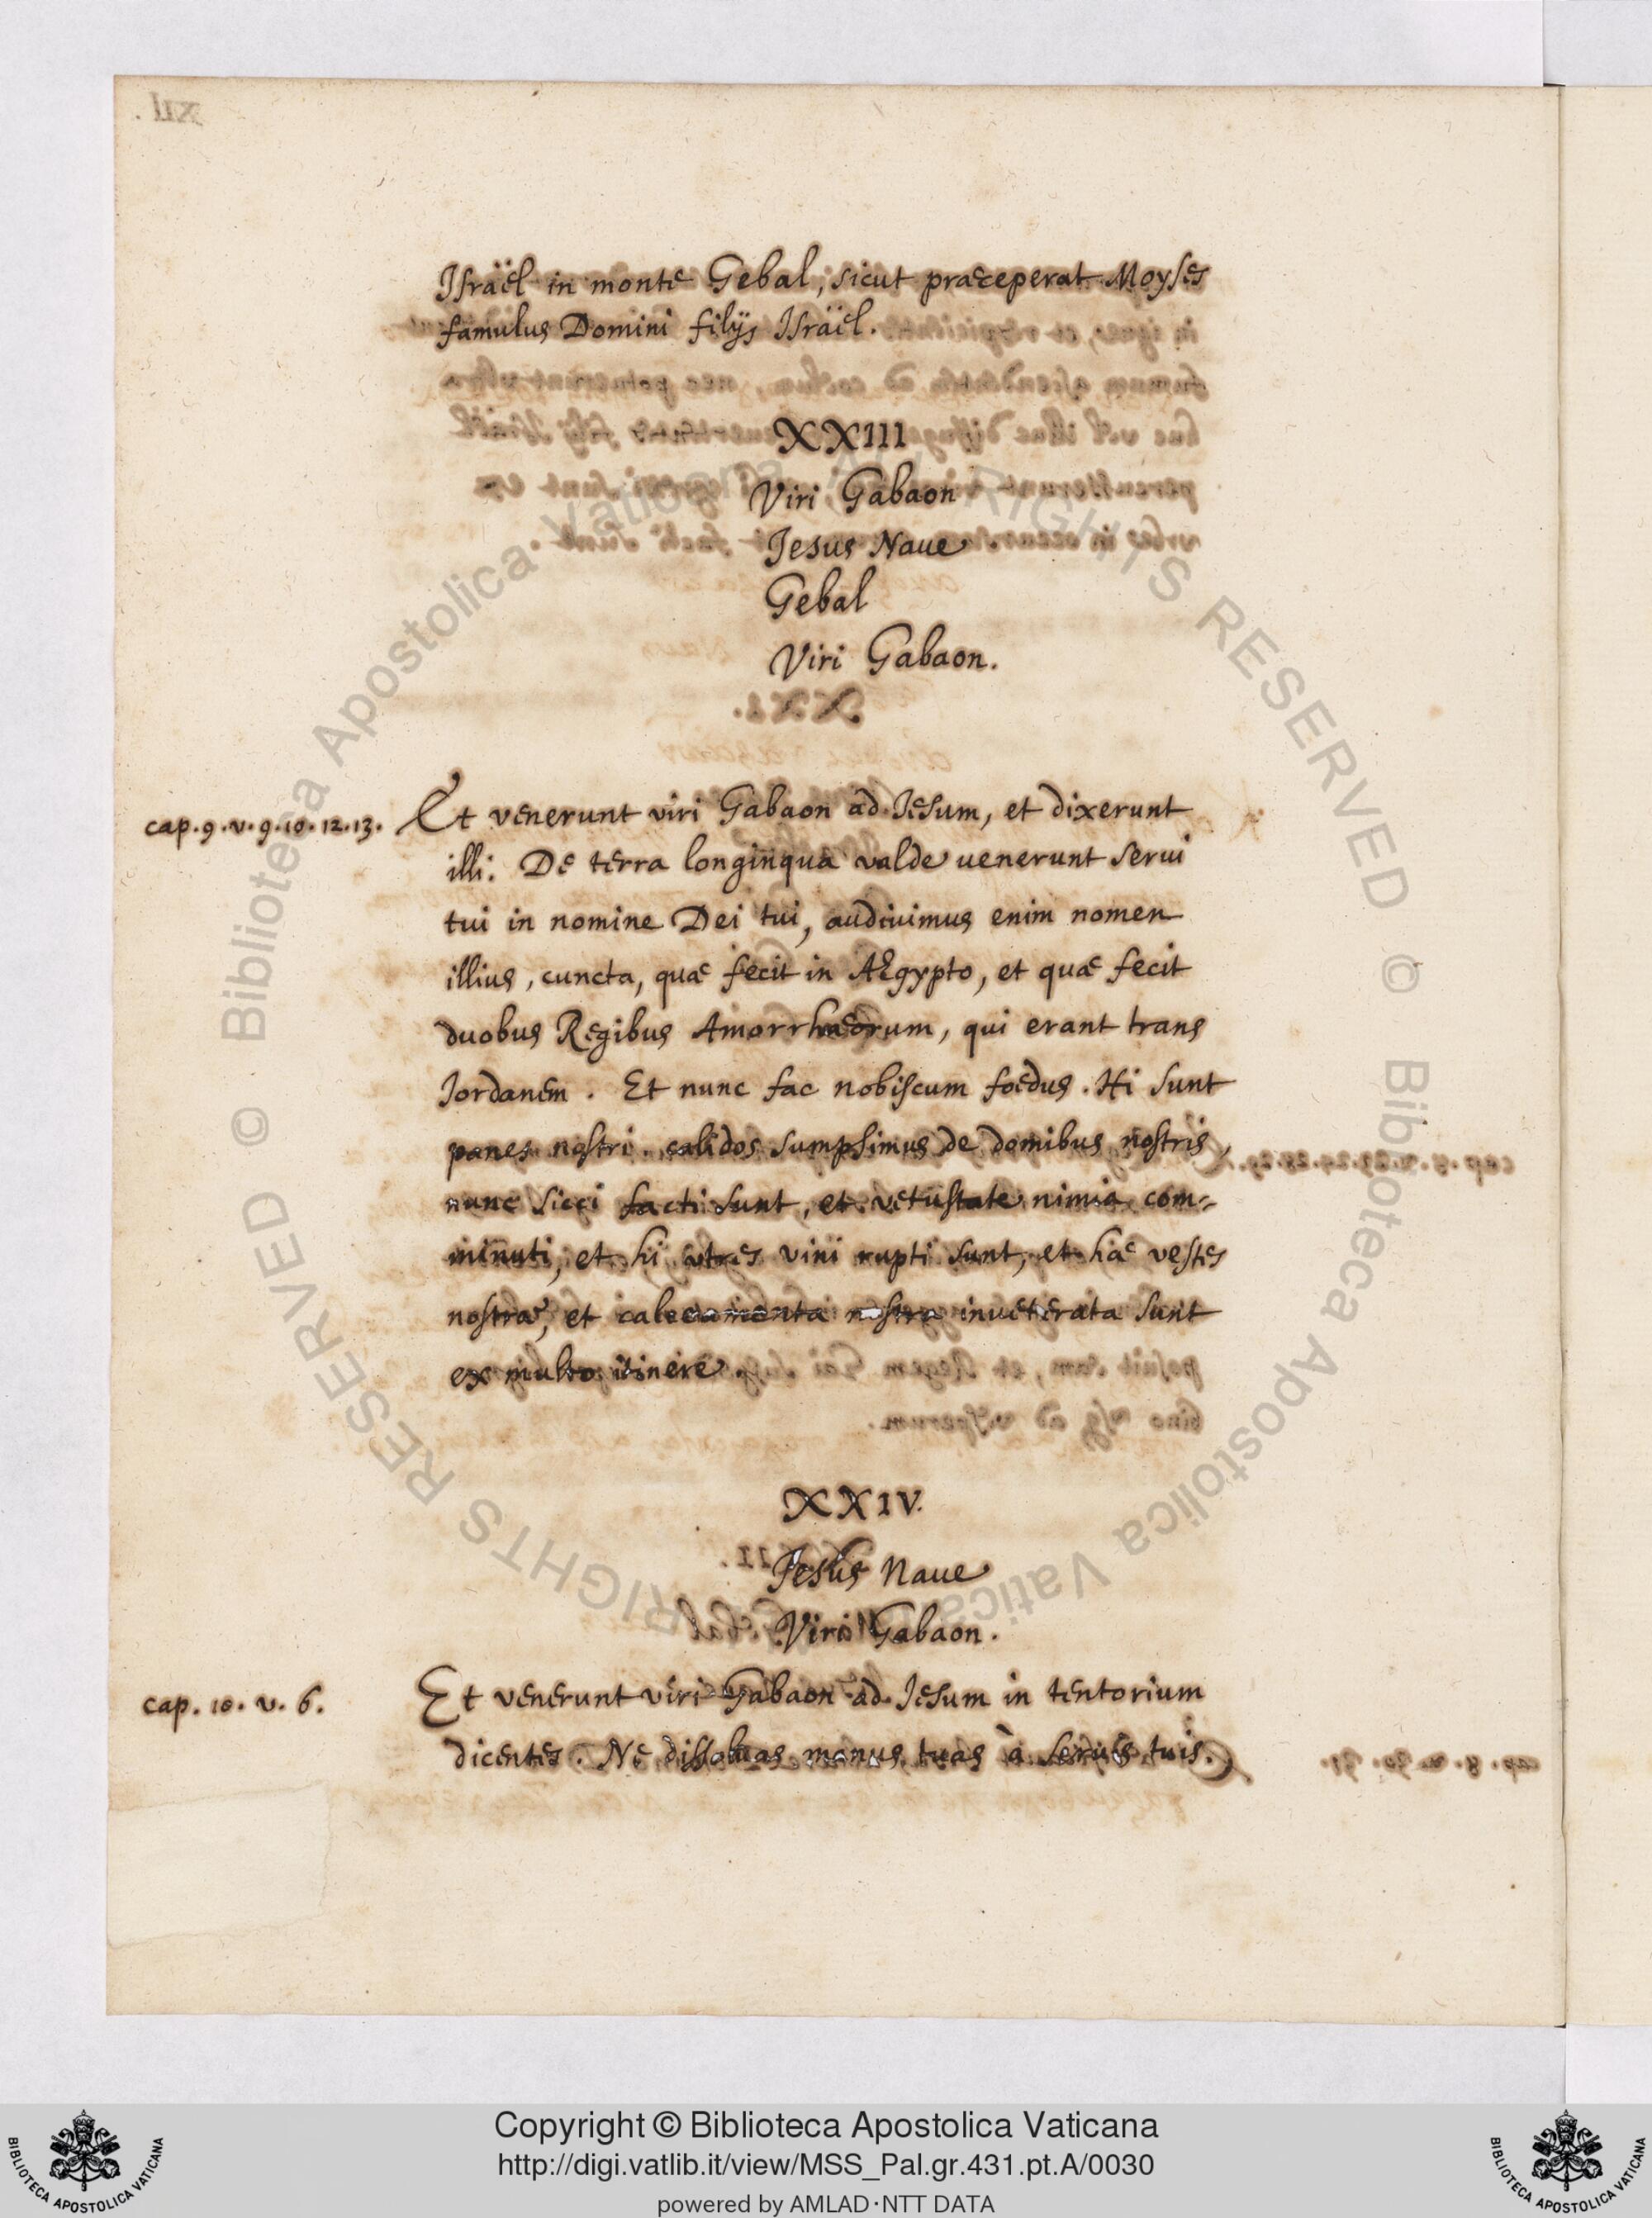 Israël in monte Gebal, sicut praeceperat Moyses
famulus Domini filijs Israël.
XXIII
Viri Gabaon
Jesus Naue
Gebal
Viri Gabaon.
cap. 9. v. 9. 10. 12. 13.
Et venerunt viri Gabaon ad Iesum, et dixerunt
illi: De terra longinqua valde uenerunt serui
tui in nomine Dei tui, audiuimus enim nomen
illius, cuncta, quae fecit in AEgypto, et quae fecit
duobus Regibus Amorrhaeorum, qui erant trans
Iordanem. Et nunc fac nobiscum foedus. Hi sunt
panes nostri. calidos sumpsimus de domibus nostris,
nunc sicci facti sunt, et vetustate nimia com-
minuti, et hi utres vini rupti sunt, et hae vestes
nostrae, et calceamenta nostra inueterata sunt
ex multo itinere.
XXIV.
Jesus Naue
Viri Gabaon.
cap. 10. v. 6.
Et venerunt viri Gabaon ad Iesum in tentorium
dicentes. Ne dissoluas manus tuas à seruis tuis.
© Biblioteca Apostolica Vaticana ALL RIGHTS RESERVED © Biblioteca Apostolica Vaticana ALL RIGHTS RESERVED
Copyright © Biblioteca Apostolica Vaticana
http://digi.vatlib.it/view/MSS_Pal.gr.431.pt.A/0030
powered by AMLAD·NTT DATA
BIBLIOTECA APOSTOLICA VATICANA
BIBLIOTECA APOSTOLICA VATICANA